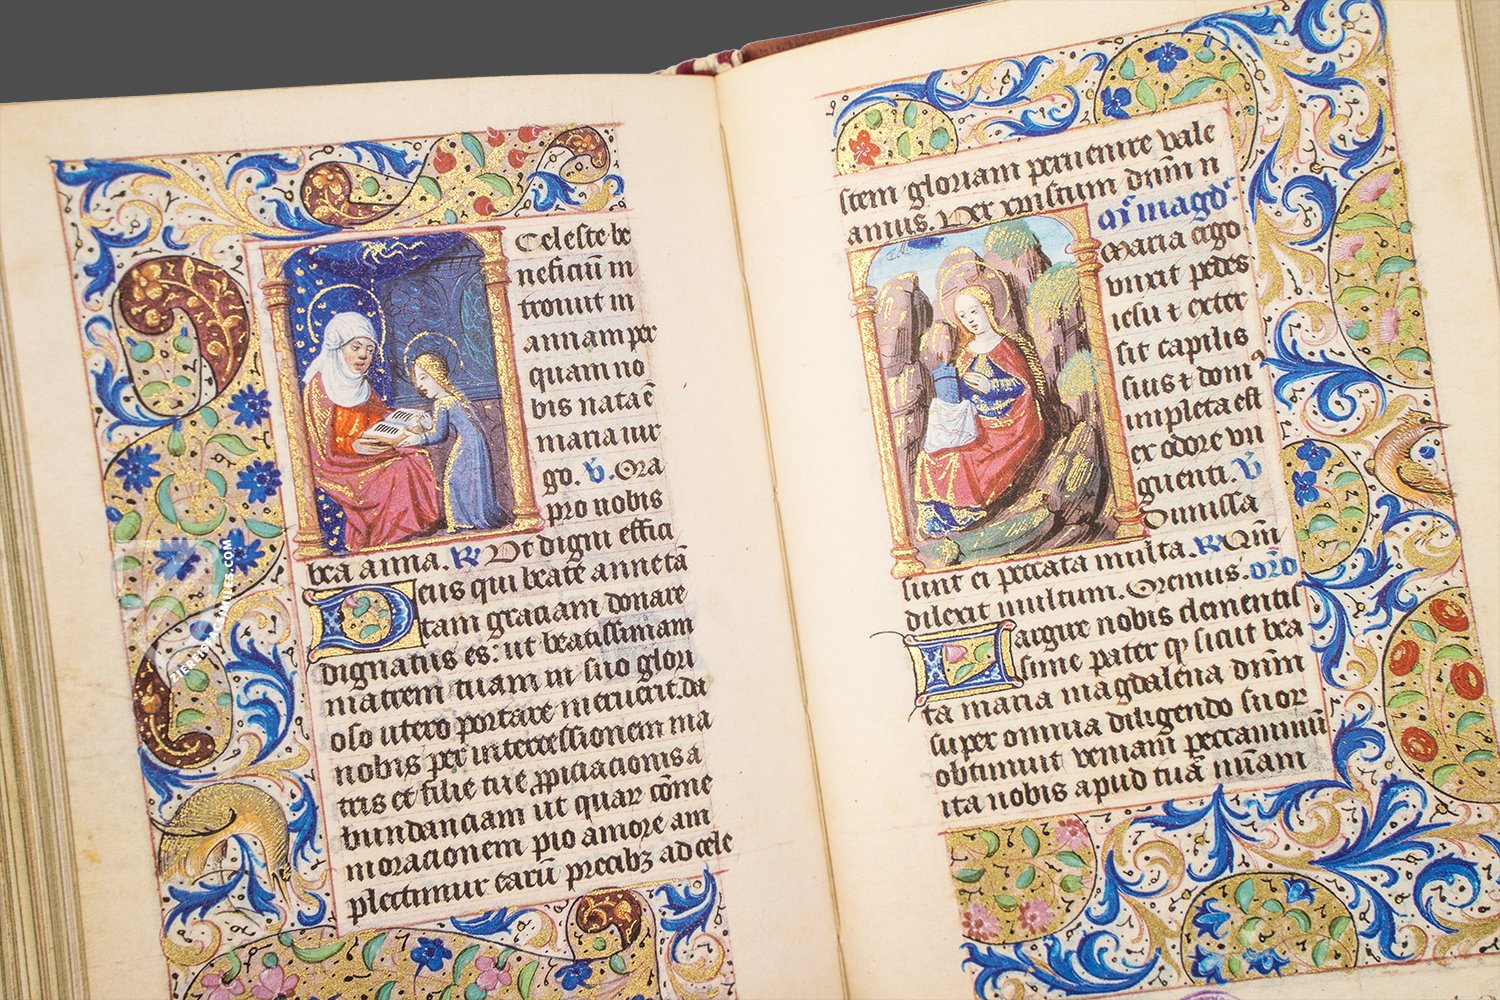 Celeste be
neficiū in
trouit in
annam per
quam no
bis nata ē
maria uir
go. ℣. Ora
pro nobis
bea anna. ℟ Vt digni effici
Deus qui beate anne tā
tam graciam donare
dignatus es: ut beatissimam
matrem tuam in suo glori
oso utero portare meruerit. da
nobis per intercessionem ma
tris et filie tue ꝓpiciacionis a
bundanciam ut quar cōme
moracionem pio amore am
plectimur earū precibꝫ ad cele
stem gloriam peruenire vale
amus. Per xpistum dn̄m n
maria ergo
vnxit pedes
iesu ⁊ exter
sit capilis
suis ⁊ domꝰ
impleta est
ex odore vn
guenti. ℣
Dimissa
sunt ei peccata multa. ℟ Qm̄
dilexit multum. Oremus. orō
Largire nobis clementis
sime pater qꝫ sicut bea
ta maria magdalena dn̄m
super omnia diligendo suor
obtinuit veniam peccaminū
ita nobis apud tuā
ZIEREIS FACSIMILES.COM